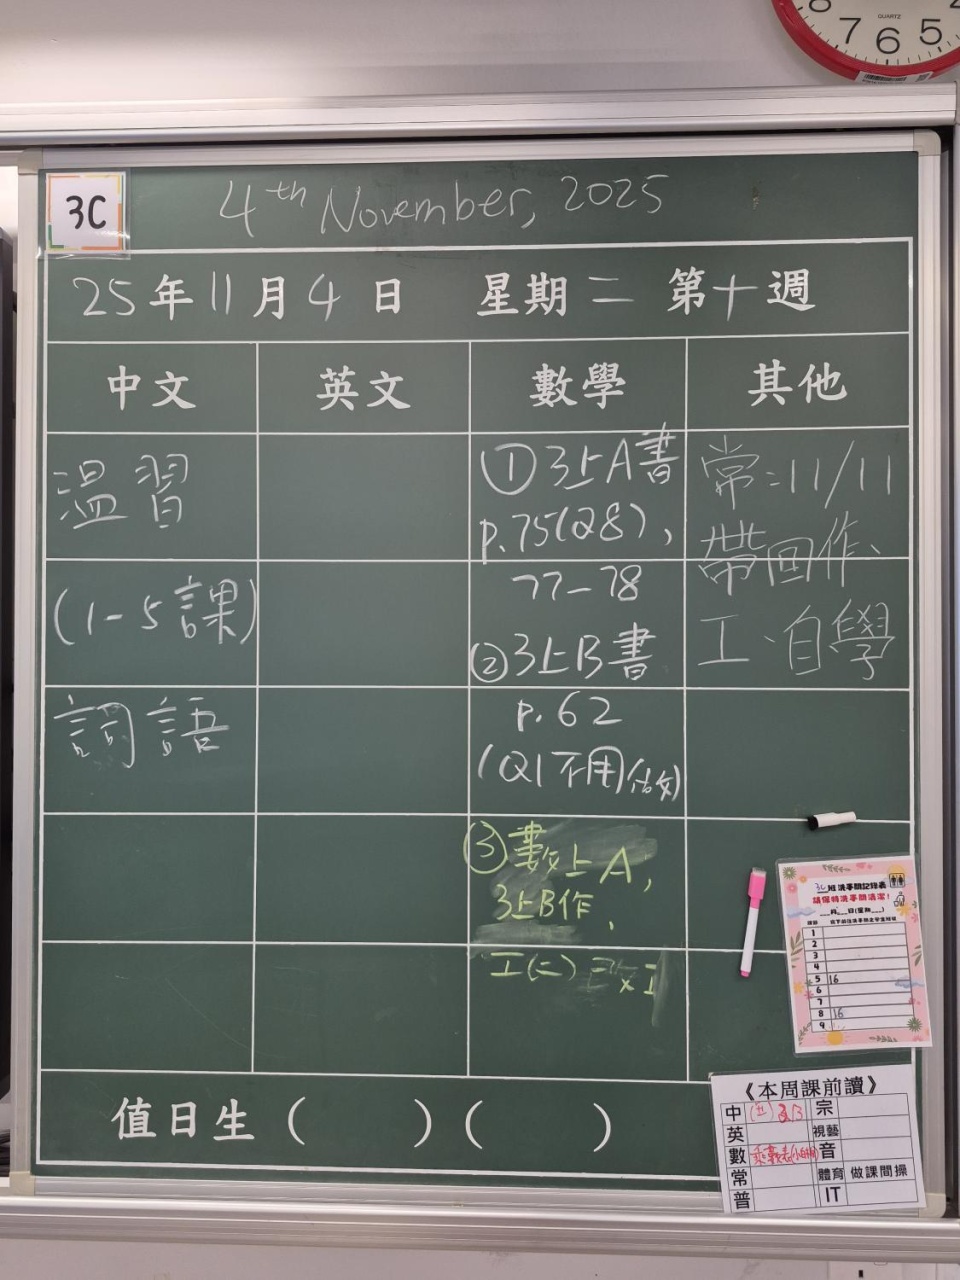 8 7 6 5 4
QUARTZ
3C
4th November, 2025
25年11月4日 星期二 第十週
中文 英文 數學 其他
溫習
(1-5課)
詞語
①3上A書
p.75(Q8),
77-78
②3上B書
p.62
(Q1不用做)
③數上A,
3上B作,
工(二)
常:11/11
帶回作、
工、自學
值日生( )( )
3C班洗手間記錄表
請保持洗手間清潔!
__月__日(星期__)
1
2
3
4
5 16
6
7
8 16
9
《本周課前讀》
中 宗
英 視藝
數 音
常 體育 做課間操
普 IT